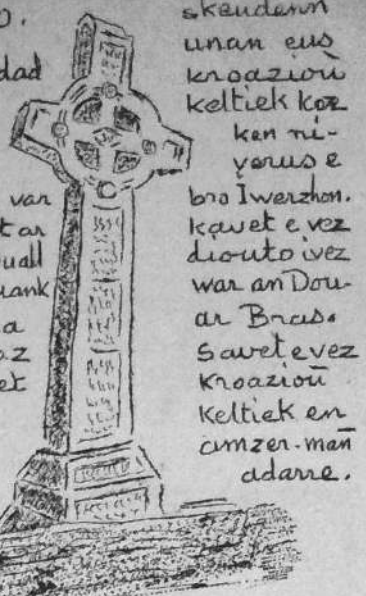 dad
var
t ar
uall
uank
a
et
skeudenn
unan eus
kroazioù
keltiek koz
ken ni-
verus e
bro Iwerzhon.
kavet e vez
diouto ivez
war an Dou-
ar Bras.
Savet e vez
kroazioù
keltiek en
amzer-mañ
adarre.